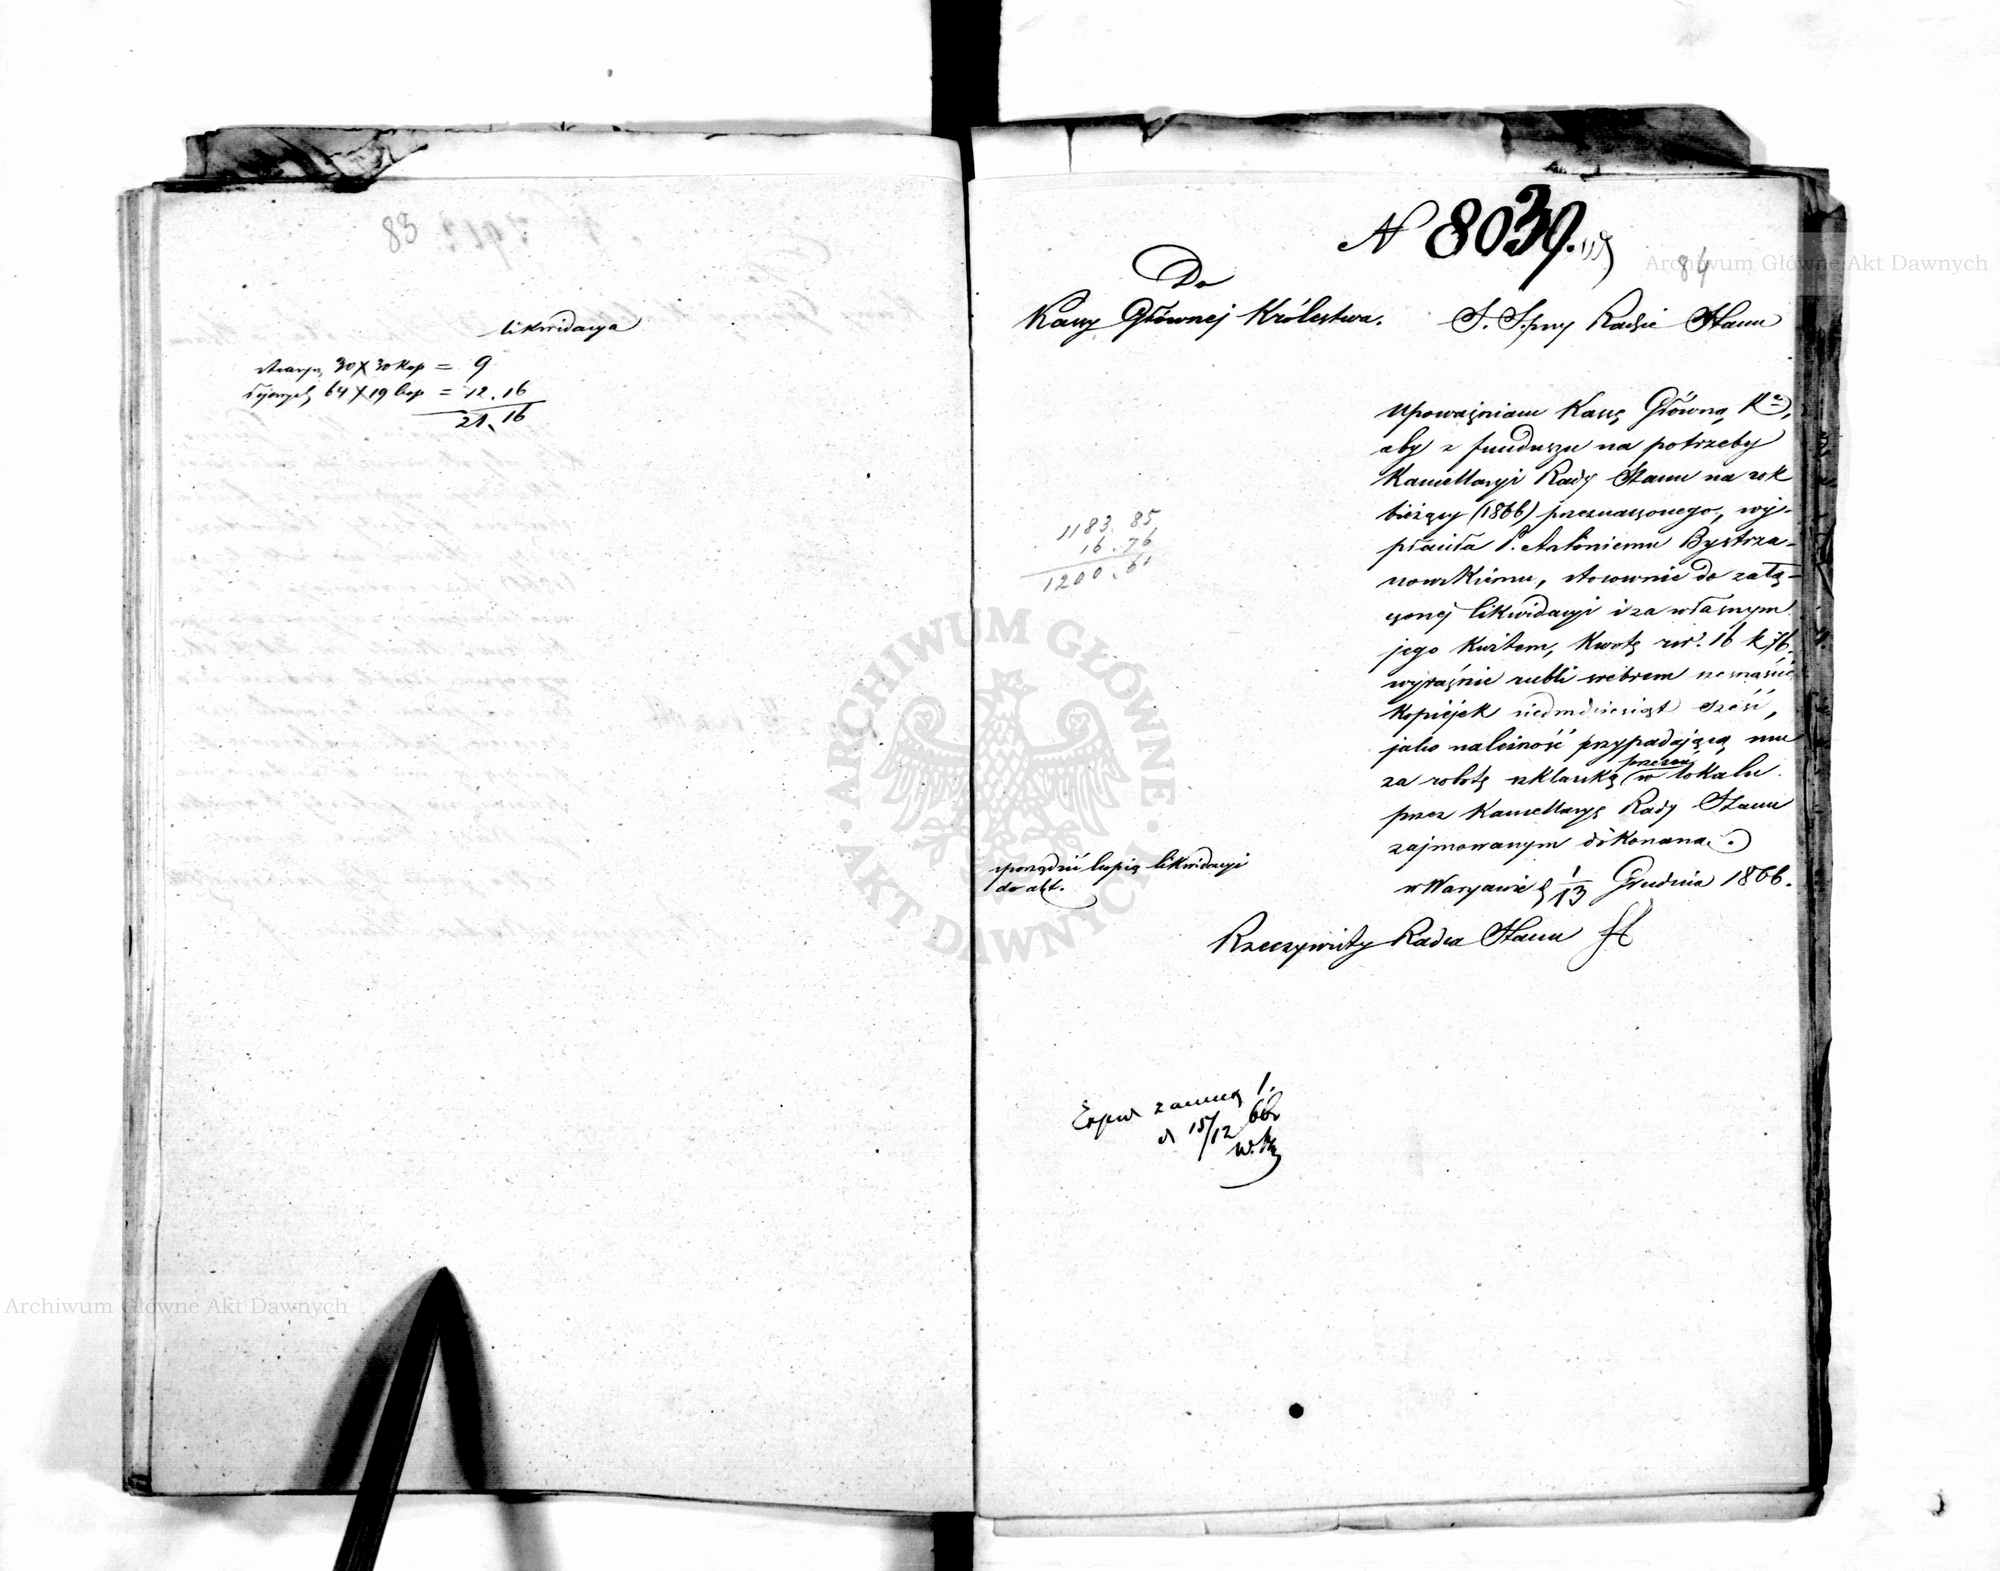 83
likwidacya
30 X 30 kop = 9
64 X 19 kop = 12.16
21.16
N 8039.
84
Archiwum Główne Akt Dawnych
Do
Kassy Głównej Królestwa.
S. S. przy Radzie Stanu
Upoważniam Kassę Główną
aby z funduszu na potrzeby
Kancellaryi Rady Stanu na rok
bieżący (1866) przeznaczonego, wy-
płaciła P. Antoniemu Bystrza-
nowskiemu, stosownie do załą-
czonej likwidacyi i za własnym
jego kwitem, kwotę rsr. 16 k 76,
wyraźnie rubli srebrem szesnaście
kopiejek siedmdziesiąt sześć,
jako należność przypadającą mu
za robotę szklarską w lokalu
przez Kancellaryę Rady Stanu
zajmowanym dokonaną.
w Warszawie d 1/13 Grudnia 1866.
Rzeczywisty Radca Stanu
1183. 85
16. 76
1200. 61
sporządzić kopię likwidacyi
do akt.
d 15/12 66
ARCHIWUM GŁÓWNE
· AKT DAWNYCH ·
Archiwum Główne Akt Dawnych